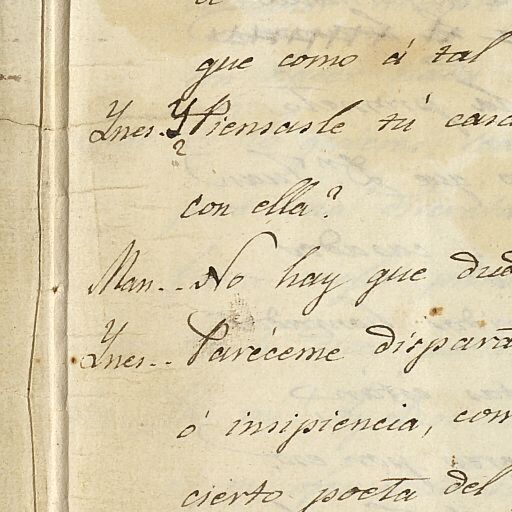 que como á tal
Ynes. Piensasle tú casa
con ella?
Man. - - No hay que dud
Ynes. - - Paréceme dispara
ó insipiencia, com
cierto poeta del